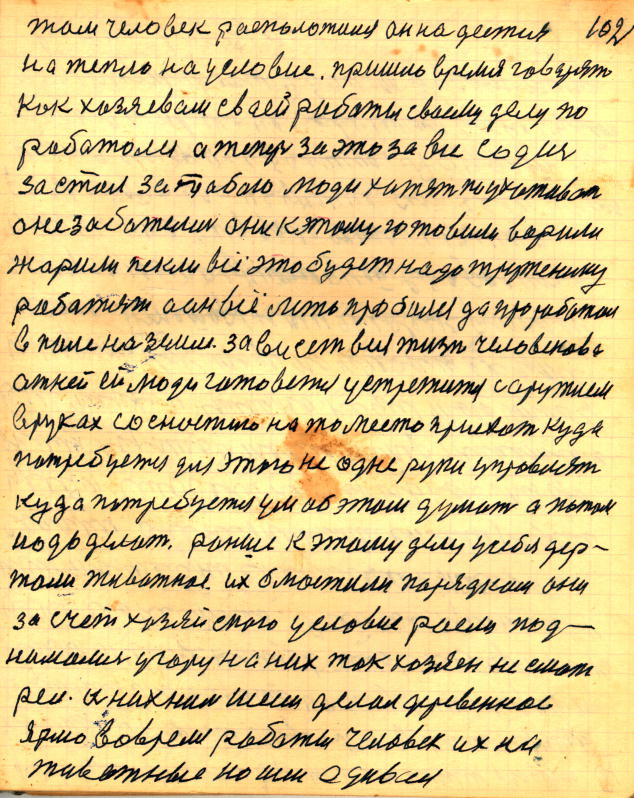 там человек расположился он надеется 102
на тепло на условие. пришло время говорят
как хозяевам своей работы своему делу по
работали а теперь за это за все садись
за стол за люди хотят поухаживат
они к этому готовили варили
жарили пекли всё это будет надо труженику
а он всё лето пробыл да проработал
в поле на земли. зависет вся жизн человекова
от ней ей люди готовятся устретится с оружием
в руках со сностию на то место приехат куда
потребуется для этого не одне руки управляят
куда потребуется ум об этом думат а потом
надо делат. ранше к этому делу у себя дер-
жали животное. их порядком они
за счёт хозяйского условие росли под-
нимались угору на них так хозяен не смот
рел. а на них шеи делал деревенное
ярмо вовремя работы человек их на
животные одивал